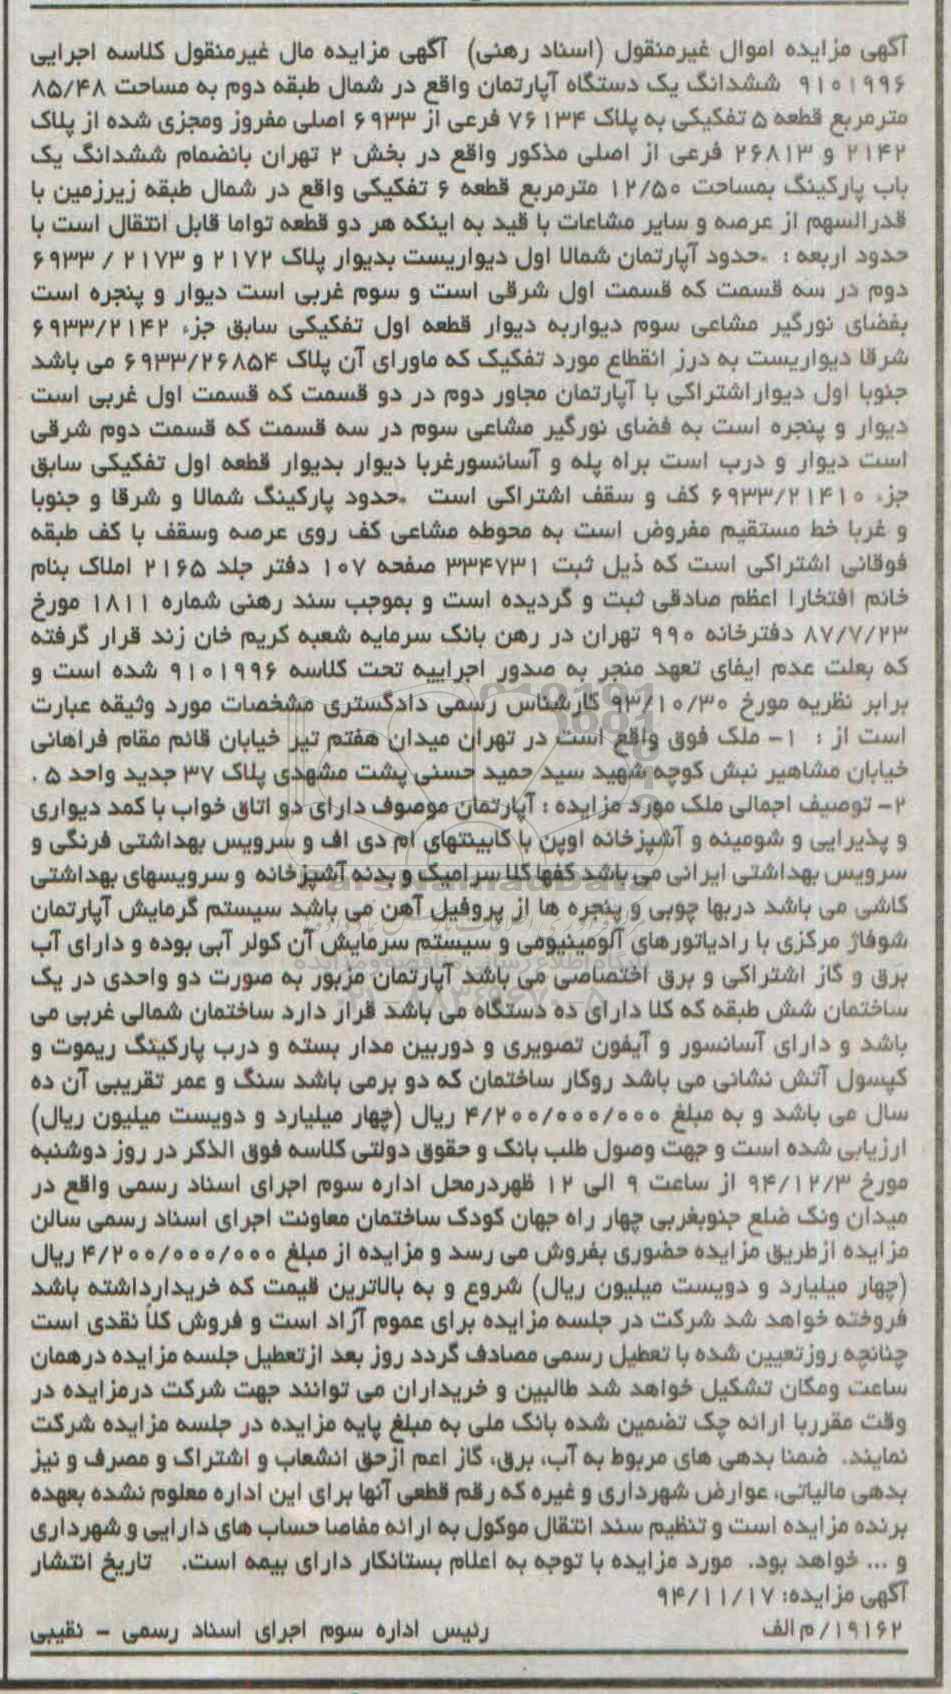 آگهی مزایده اموال غیرمنقول (اسناد رهنی) آگهی مزایده مال غیرمنقول کلاسه اجرایی
۹۱۰۱۹۹۶ ششدانگ یک دستگاه آپارتمان واقع در شمال طبقه دوم به مساحت ۸۵/۴۸
مترمربع قطعه ۵ تفکیکی به پلاک ۷۶۱۳۴ فرعی از ۶۹۳۳ اصلی مفروز ومجزی شده از پلاک
۲۱۴۲ و ۲۶۸۱۳ فرعی از اصلی مذکور واقع در بخش ۲ تهران بانضمام ششدانگ یک
باب پارکینگ بمساحت ۱۲/۵۰ مترمربع قطعه ۶ تفکیکی واقع در شمال طبقه زیرزمین با
قدرالسهم از عرصه و سایر مشاعات با قید به اینکه هر دو قطعه تواما قابل انتقال است با
حدود اربعه : •حدود آپارتمان شمالا اول دیواریست بدیوار پلاک ۲۱۷۲ و ۲۱۷۳ / ۶۹۳۳
دوم در سه قسمت که قسمت اول شرقی است و سوم غربی است دیوار و پنجره است
بفضای نورگیر مشاعی سوم دیواربه دیوار قطعه اول تفکیکی سابق جزء ۶۹۳۳/۲۱۴۲
شرقا دیواریست به درز انقطاع مورد تفکیک که ماورای آن پلاک ۶۹۳۳/۲۶۸۵۴ می باشد
جنوبا اول دیواراشتراکی با آپارتمان مجاور دوم در دو قسمت که قسمت اول غربی است
دیوار و پنجره است به فضای نورگیر مشاعی سوم در سه قسمت که قسمت دوم شرقی
است دیوار و درب است براه پله و آسانسورغربا دیوار بدیوار قطعه اول تفکیکی سابق
جزء ۶۹۳۳/۲۱۴۱۰ کف و سقف اشتراکی است •حدود پارکینگ شمالا و شرقا و جنوبا
و غربا خط مستقیم مفروض است به محوطه مشاعی کف روی عرصه وسقف با کف طبقه
فوقانی اشتراکی است که ذیل ثبت ۳۳۴۷۳۱ صفحه ۱۰۷ دفتر جلد ۲۱۶۵ املاک بنام
خانم افتخارا اعظم صادقی ثبت و گردیده است و بموجب سند رهنی شماره ۱۸۱۱ مورخ
۸۷/۷/۲۳ دفترخانه ۹۹۰ تهران در رهن بانک سرمایه شعبه کریم خان زند قرار گرفته
که بعلت عدم ایفای تعهد منجر به صدور اجراییه تحت کلاسه ۹۱۰۱۹۹۶ شده است و
برابر نظریه مورخ ۹۳/۱۰/۳۰ کارشناس رسمی دادگستری مشخصات مورد وثیقه عبارت
است از : ۱- ملک فوق واقع است در تهران میدان هفتم تیر خیابان قائم مقام فراهانی
خیابان مشاهیر نبش کوچه شهید سید حمید حسنی پشت مشهدی پلاک ۳۷ جدید واحد ۵ .
۲- توصیف اجمالی ملک مورد مزایده : آپارتمان موصوف دارای دو اتاق خواب با کمد دیواری
و پذیرایی و شومینه و آشپزخانه اوپن با کابینتهای ام دی اف و سرویس بهداشتی فرنگی و
سرویس بهداشتی ایرانی می باشد کفها کلا سرامیک و بدنه آشپزخانه و سرویسهای بهداشتی
کاشی می باشد دربها چوبی و پنجره ها از پروفیل آهن می باشد سیستم گرمایش آپارتمان
شوفاژ مرکزی با رادیاتورهای آلومینیومی و سیستم سرمایش آن کولر آبی بوده و دارای آب
برق و گاز اشتراکی و برق اختصاصی می باشد آپارتمان مزبور به صورت دو واحدی در یک
ساختمان شش طبقه که کلا دارای ده دستگاه می باشد قرار دارد ساختمان شمالی غربی می
باشد و دارای آسانسور و آیفون تصویری و دوربین مدار بسته و درب پارکینگ ریموت و
کپسول آتش نشانی می باشد روکار ساختمان که دو برمی باشد سنگ و عمر تقریبی آن ده
سال می باشد و به مبلغ ۴/۲۰۰/۰۰۰/۰۰۰ ریال (چهار میلیارد و دویست میلیون ریال)
ارزیابی شده است و جهت وصول طلب بانک و حقوق دولتی کلاسه فوق الذکر در روز دوشنبه
مورخ ۹۴/۱۲/۳ از ساعت ۹ الی ۱۲ ظهردرمحل اداره سوم اجرای اسناد رسمی واقع در
میدان ونک ضلع جنوبغربی چهار راه جهان کودک ساختمان معاونت اجرای اسناد رسمی سالن
مزایده ازطریق مزایده حضوری بفروش می رسد و مزایده از مبلغ ۴/۲۰۰/۰۰۰/۰۰۰ ریال
(چهار میلیارد و دویست میلیون ریال) شروع و به بالاترین قیمت که خریدارداشته باشد
فروخته خواهد شد شرکت در جلسه مزایده برای عموم آزاد است و فروش کلاً نقدی است
چنانچه روزتعیین شده با تعطیل رسمی مصادف گردد روز بعد ازتعطیل جلسه مزایده درهمان
ساعت ومکان تشکیل خواهد شد طالبین و خریداران می توانند جهت شرکت درمزایده در
وقت مقرربا ارائه چک تضمین شده بانک ملی به مبلغ پایه مزایده در جلسه مزایده شرکت
نمایند. ضمنا بدهی های مربوط به آب، برق، گاز اعم ازحق انشعاب و اشتراک و مصرف و نیز
بدهی مالیاتی، عوارض شهرداری و غیره که رقم قطعی آنها برای این اداره معلوم نشده بعهده
برنده مزایده است و تنظیم سند انتقال موکول به ارائه مفاصا حساب های دارایی و شهرداری
و ... خواهد بود. مورد مزایده با توجه به اعلام بستانکار دارای بیمه است. تاریخ انتشار
آگهی مزایده: ۹۴/۱۱/۱۷
۱۹۱۶۲/م الف رئیس اداره سوم اجرای اسناد رسمی - نقیبی